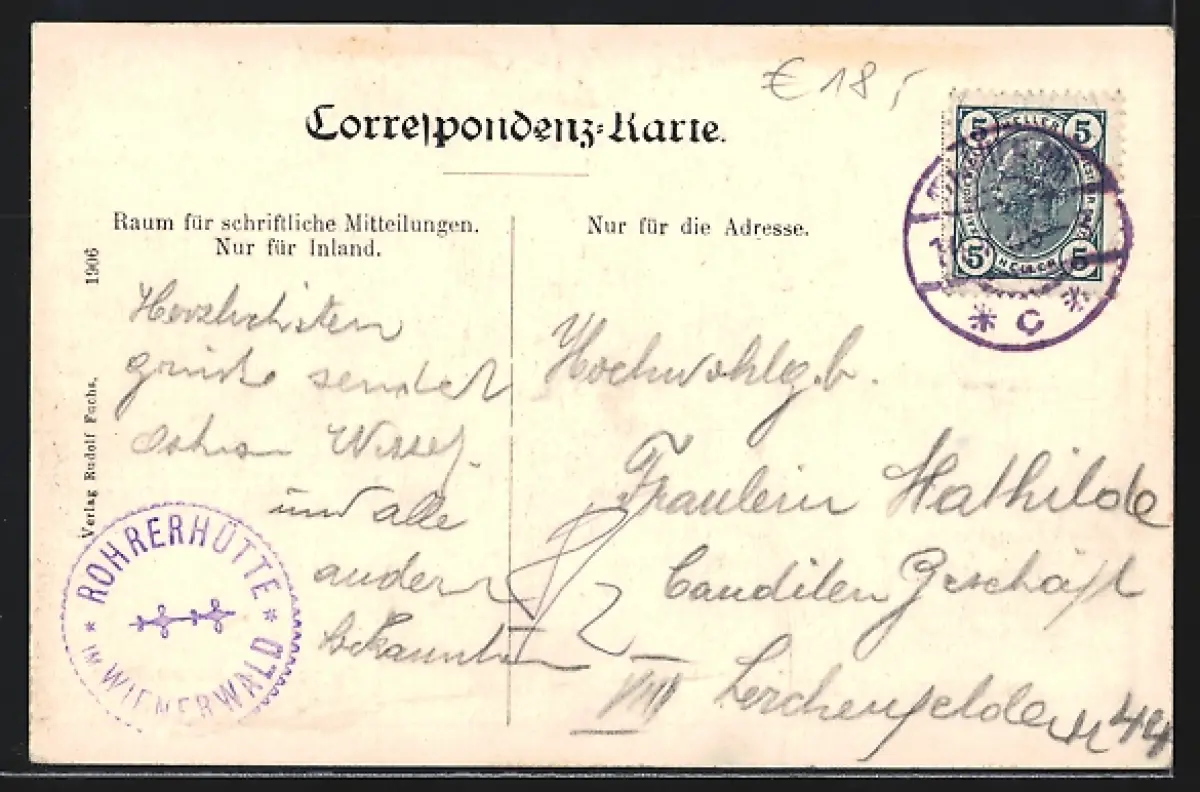 € 18,
Correspondenz-Karte.
Raum für schriftliche Mitteilungen.
Nur für Inland.
Nur für die Adresse.
1906
Verlag Rudolf Fuchs.
5 HELLER 5
5 HELLER 5
* C *
Herzlichsten
grüße sendet
und alle
andern
Bekannten
Hochwohlgb.
Fräulein Mathilde
Canditen Geschäft
VIII Lerchenfelder 44
ROHRERHÜTTE
* IM WIENERWALD *